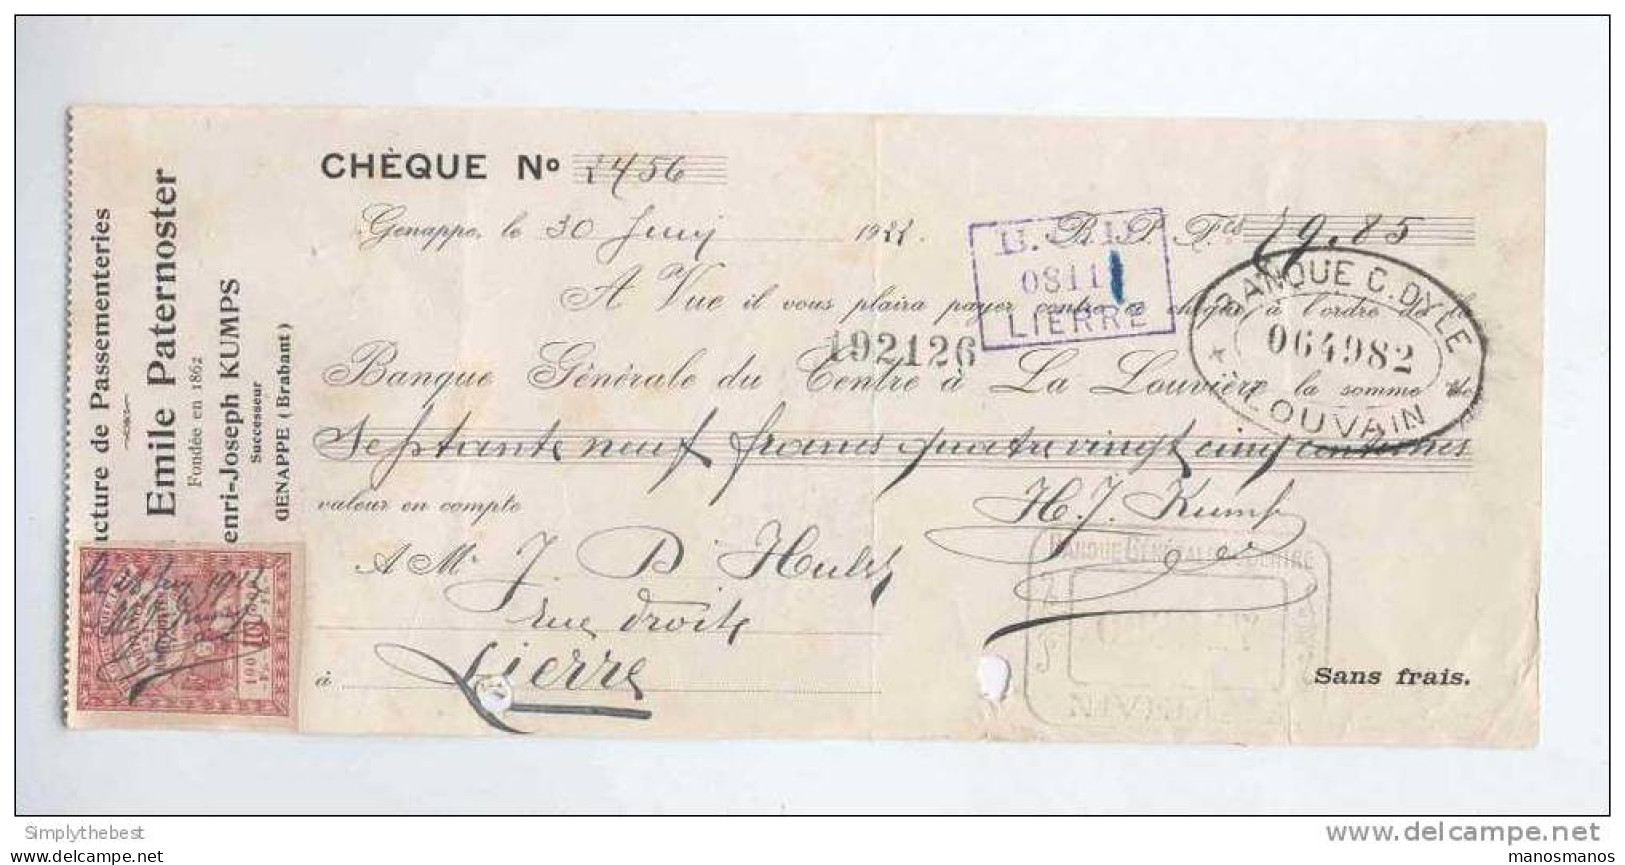 CHÈQUE Nº 2456
Genappe, le 30 Juin 1922. B. P. Fcs 79.85
A Vue il vous plaira payer contre ce chèque à l'ordre de la
Banque Générale du Centre à La Louvière la somme de
Septante neuf francs quatre vingt cinq centimes
valeur en compte
H. J. Kumps
A Mr J. D Hulst
rue droite
à Lierre
Sans frais.
ucture de Passementeries
Emile Paternoster
Fondée en 1862
enri-Joseph KUMPS
Successeur
GENAPPE (Brabant)
0811
LIERRE
192126
BANQUE C. DYLE
064982
LOUVAIN
BANQUE GÉNÉRALE
le 28 Juin 1922
100
10
Simplythebest
www.delcampe.net
manosmanos